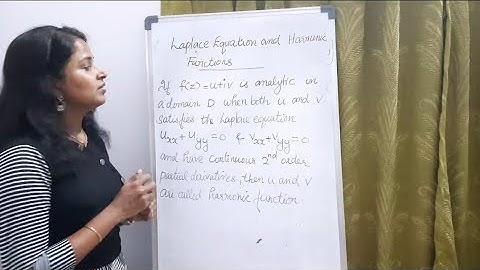 Laplace Equation and Harmonic
Functions
If f(z)=u+iv is analytic in
a domain D when both u and v
satisfies the Laplace equation
uxx+uyy=0 & vxx+vyy=0
and have continuous 2nd order
partial derivatives, then u and v
are called harmonic function.